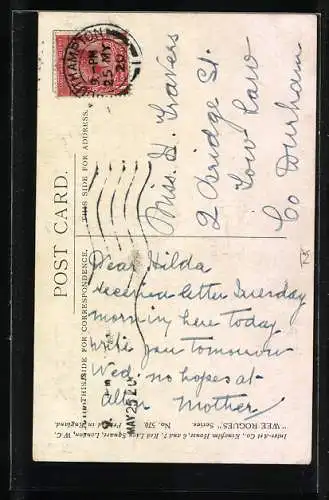 POST CARD.
THIS SIDE FOR CORRESPONDENCE.
THIS SIDE FOR ADDRESS.
HAMPTON
9- PM
25 MY
20
Miss. H. Travers
2 Bridge St.
Tow Law
Co Durham
Dear Hilda
received letter Tuesday
morning here today
write you tomorrow
Wed, no hopes at
Mother
MAY 25 20
"WEE ROGUES" Series.
No. 570.
Inter-Art Co., Kingfilm House, 6 and 7, Red Lion Square, London, W.C.
Printed in England.